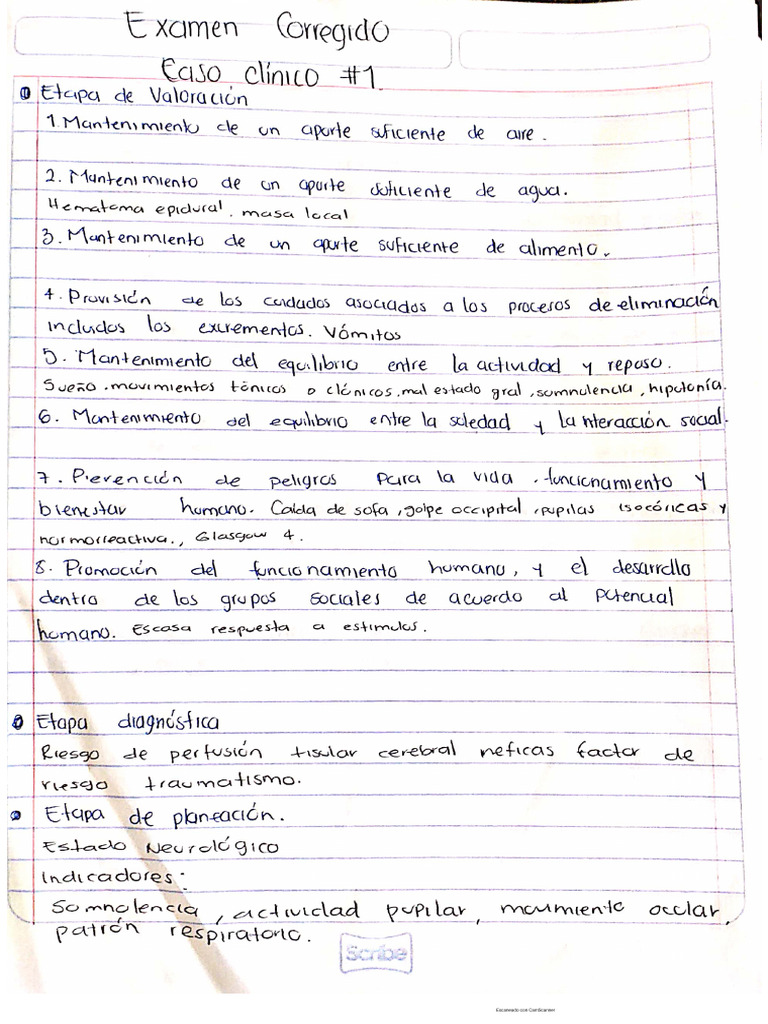 Examen Corregido
Caso clínico #1
Etapa de Valoración
1. Mantenimiento de un aporte suficiente de aire.
2. Mantenimiento de un aporte suficiente de agua.
Hematoma epidural. masa local
3. Mantenimiento de un aporte suficiente de alimento.
4. Provisión de los cuidados asociados a los procesos de eliminación
incluidos los excrementos. Vómitos
5. Mantenimiento del equilibrio entre la actividad y reposo.
Sueño. movimientos tónicos o clónicos. mal estado gral, somnolencia, hipotonía.
6. Mantenimiento del equilibrio entre la soledad y la interacción social.
7. Prevención de peligros para la vida, funcionamiento y
bienestar humano. Caída de sofa, golpe occipital, pupilas isocóricas y
normorreactiva., Glasgow 4.
8. Promoción del funcionamiento humano, y el desarrollo
dentro de los grupos sociales de acuerdo al potencial
humano. Escasa respuesta a estimulos.
Etapa diagnóstica
Riesgo de perfusión tisular cerebral neficas factor de
riesgo traumatismo.
Etapa de planeación.
Estado Neurológico
Indicadores:
Somnolencia, actividad pupilar, movimiento ocular,
patrón respiratorio.
Scribe
Escaneado con CamScanner